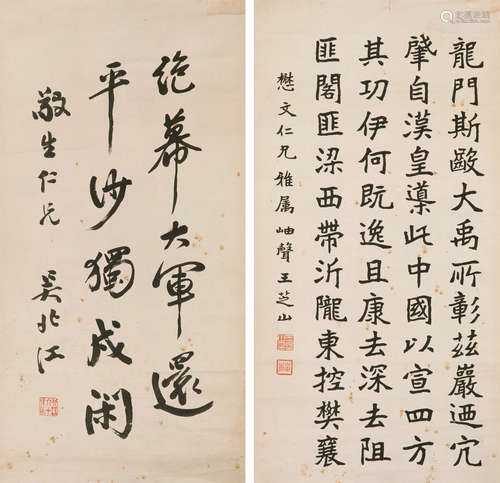 龍門斯毆大禹所彰茲巖迺宂
肇自漢皇導此中國以宣四方
其功伊何既逸且康去深去阻
匪閣匪梁西帶汧隴東控樊襄
懋文仁兄雅属岫聲王芝山
絶幕大軍還
平沙獨戍閑
敬生仁兄 吴北江